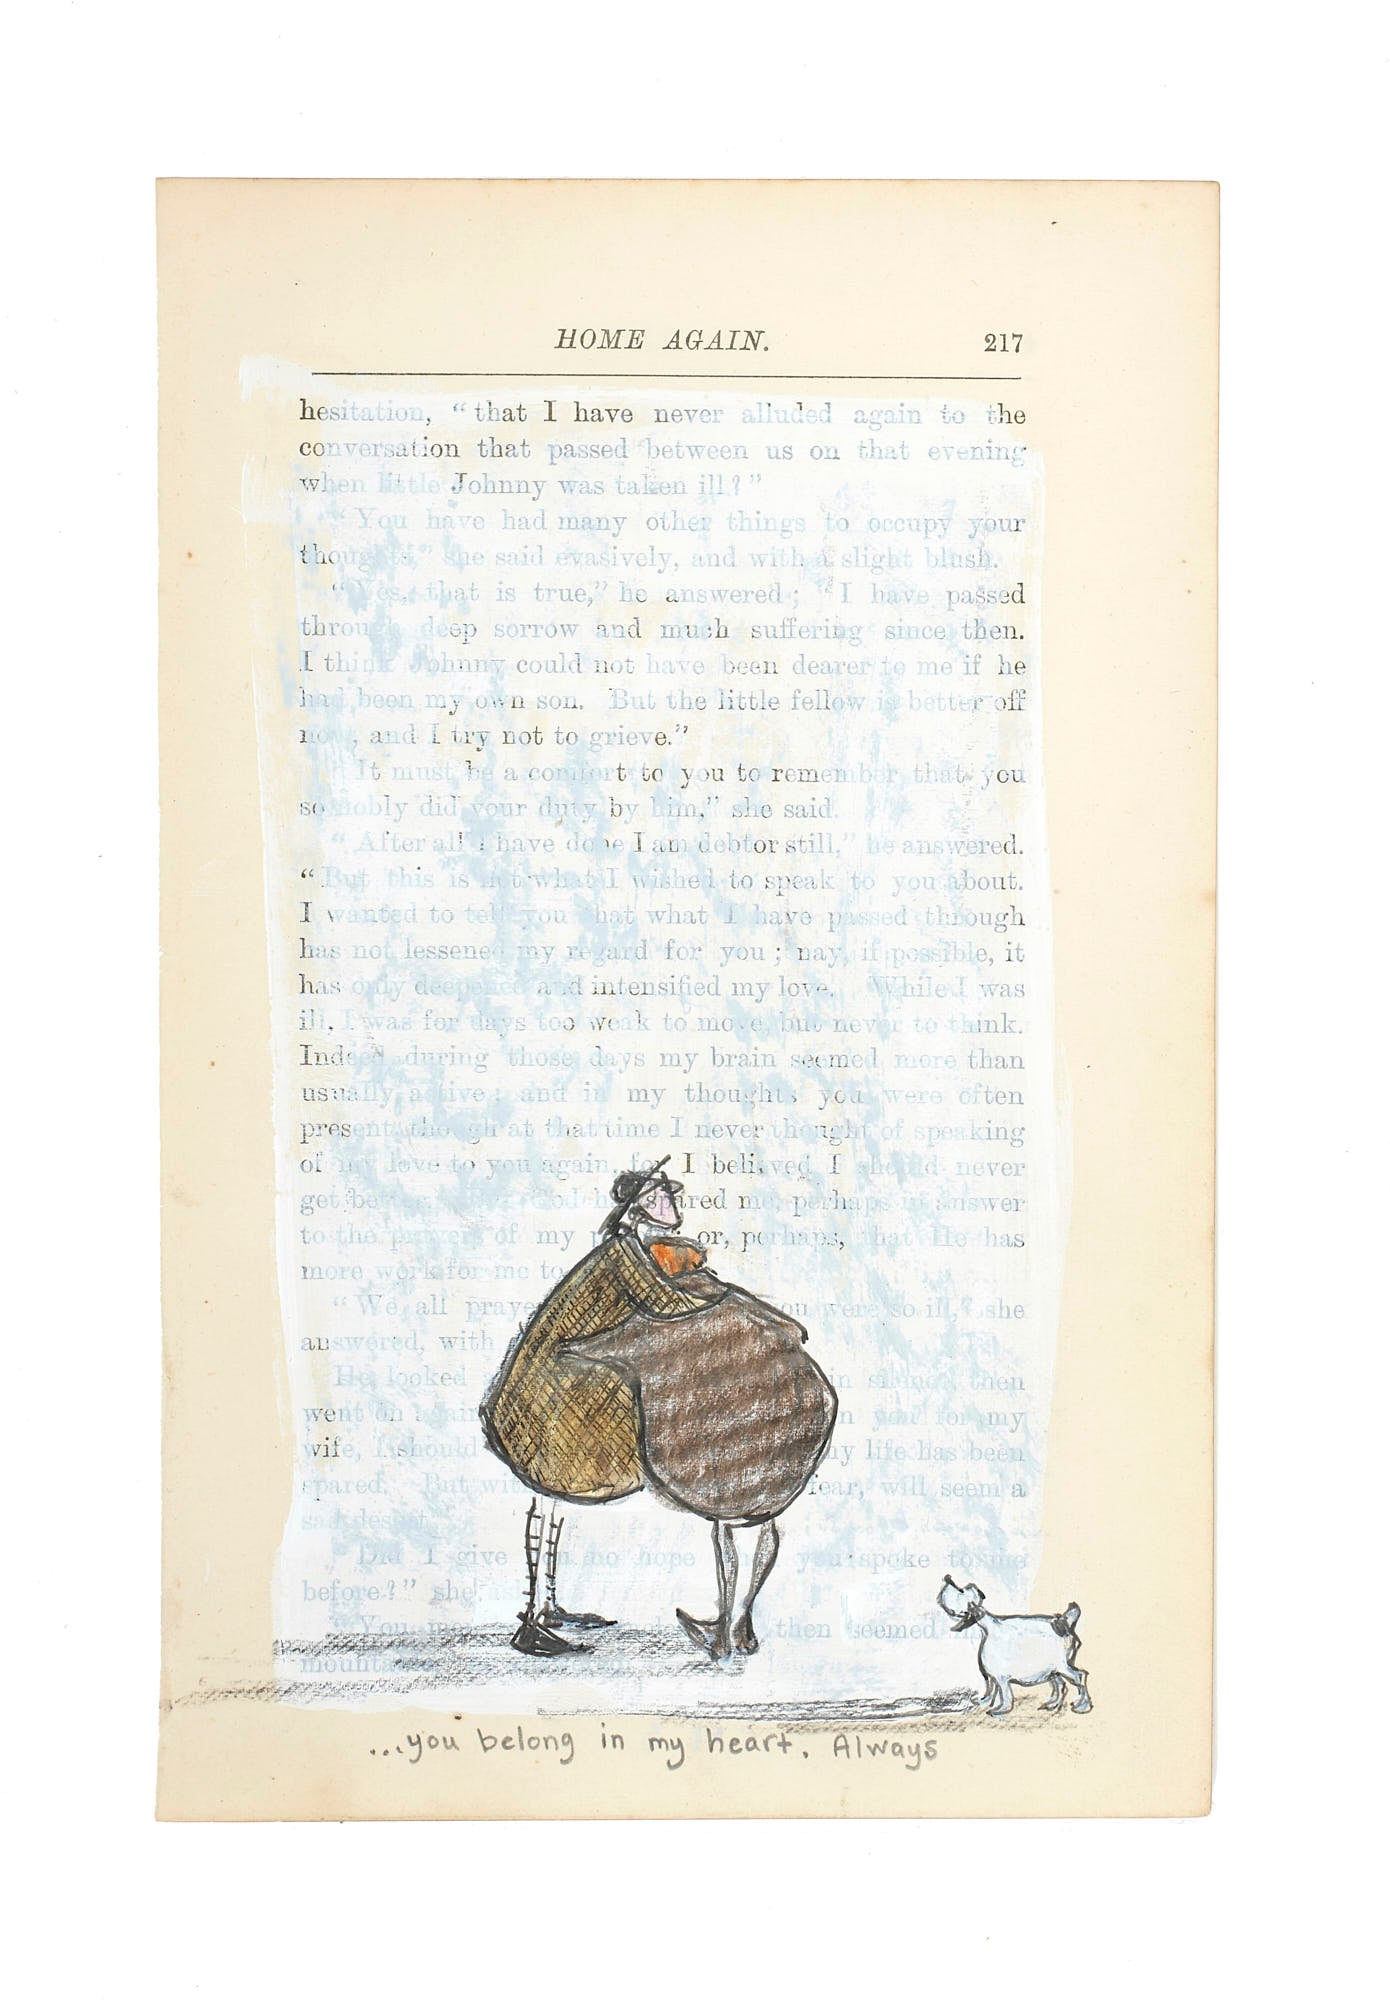 HOME AGAIN. 217
hesitation, “that I have never alluded again to the
conversation that passed between us on that evening
when little Johnny was taken ill?”
“You have had many other things to occupy your
thoughts,” she said evasively, and with a slight blush.
“Yes, that is true,” he answered; “I have passed
through deep sorrow and much suffering since then.
I think Johnny could not have been dearer to me if he
had been my own son. But the little fellow is better off
now, and I try not to grieve.”
“It must be a comfort to you to remember that you
so nobly did your duty by him,” she said.
“After all I have done I am debtor still,” he answered.
“But this is not what I wished to speak to you about.
I wanted to tell you that what I have passed through
has not lessened my regard for you; nay, if possible, it
has only deepened and intensified my love. While I was
ill, I was for days too weak to move, but never to think.
Indeed, during those days my brain seemed more than
usually active; and in my thoughts you were often
present, though at that time I never thought of speaking
of my love to you again, for I believed I should never
get better. God has spared me, perhaps in answer
to the prayers of my or, perhaps, that He has
more work for me to
“We all prayed you were so ill,” she
answered, with
He looked in silence, then
went on again you for my
wife, I should my life has been
spared. But with fear, will seem a
sad desert.
“Did I give you no hope when you spoke to me
before?” she
“You then seemed
mountain
...you belong in my heart. Always